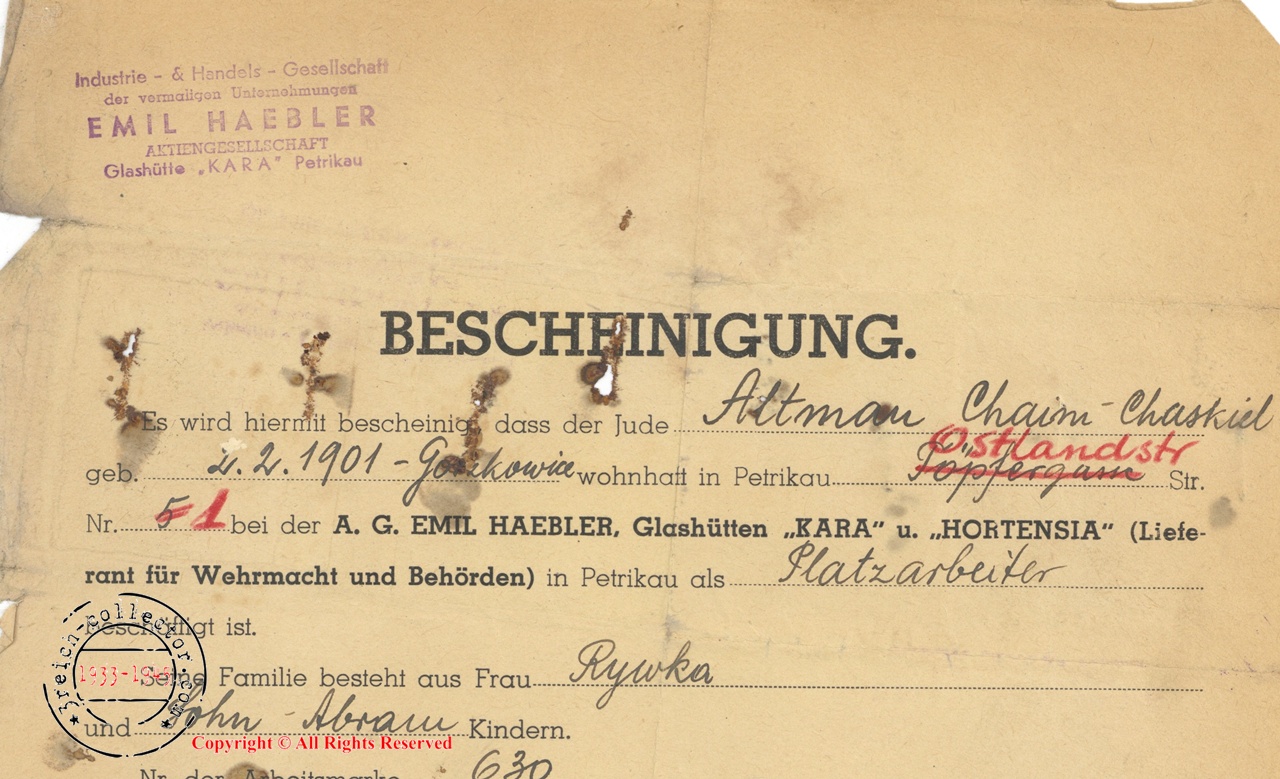 Industrie - & Handels - Gesellschaft
der vermaligen Unternehmungen
EMIL HAEBLER
AKTIENGESELLSCHAFT
Glashütte „KARA" Petrikau
BESCHEINIGUNG.
Es wird hiermit bescheinigt, dass der Jude Altman Chaim-Chaskiel
Ostlandstr
geb. 2.2.1901 - Gorzkowice wohnhaft in Petrikau Töpfergasse Str.
Nr. 5 1 bei der A. G. EMIL HAEBLER, Glashütten „KARA" u. „HORTENSIA" (Liefe-
rant für Wehrmacht und Behörden) in Petrikau als Platzarbeiter
beschäftigt ist.
Seine Familie besteht aus Frau Rywka
und Sohn - Abram Kindern.
Nr. der Arbeitsmarke 630
3reich-collector.com
1933-1945
Copyright © All Rights Reserved